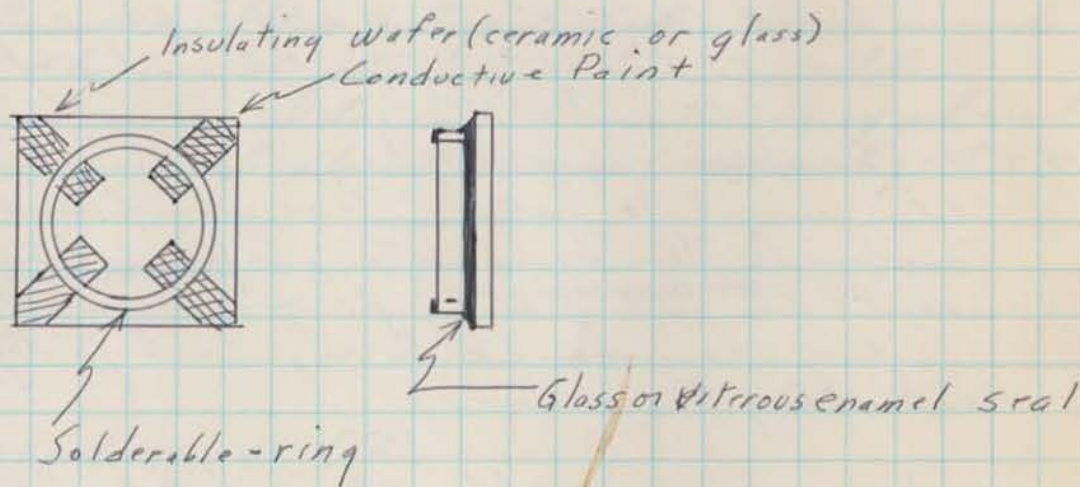 Insulating wafer (ceramic or glass)
Conductive Paint
Glass or viterous enamel seal
Solderable-ring